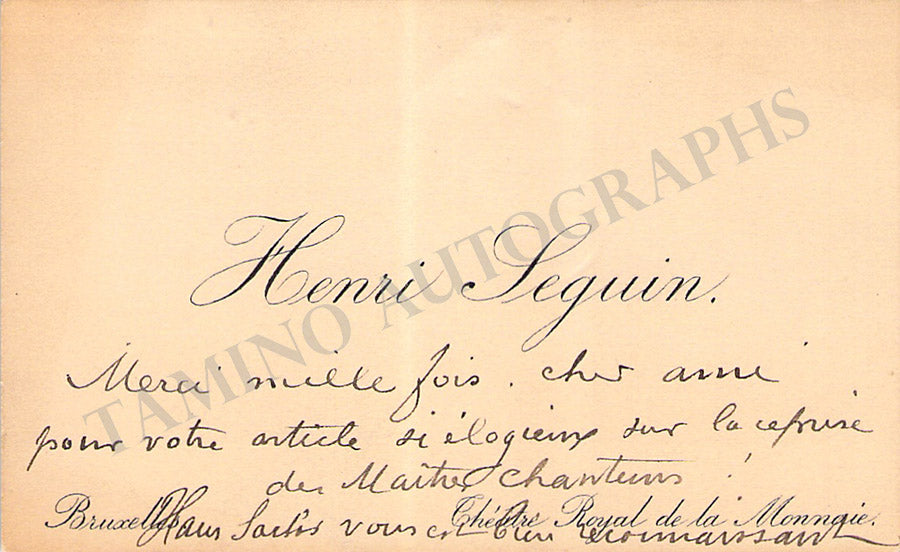 TAMINO AUTOGRAPHS
Henri Seguin.
Merci mille fois. cher ami
pour votre article si élogieux sur la reprise
des Maîtres chanteurs !
Bruxelles. Théâtre Royal de la Monnaie.
Hans Sachs vous est bien reconnaissant